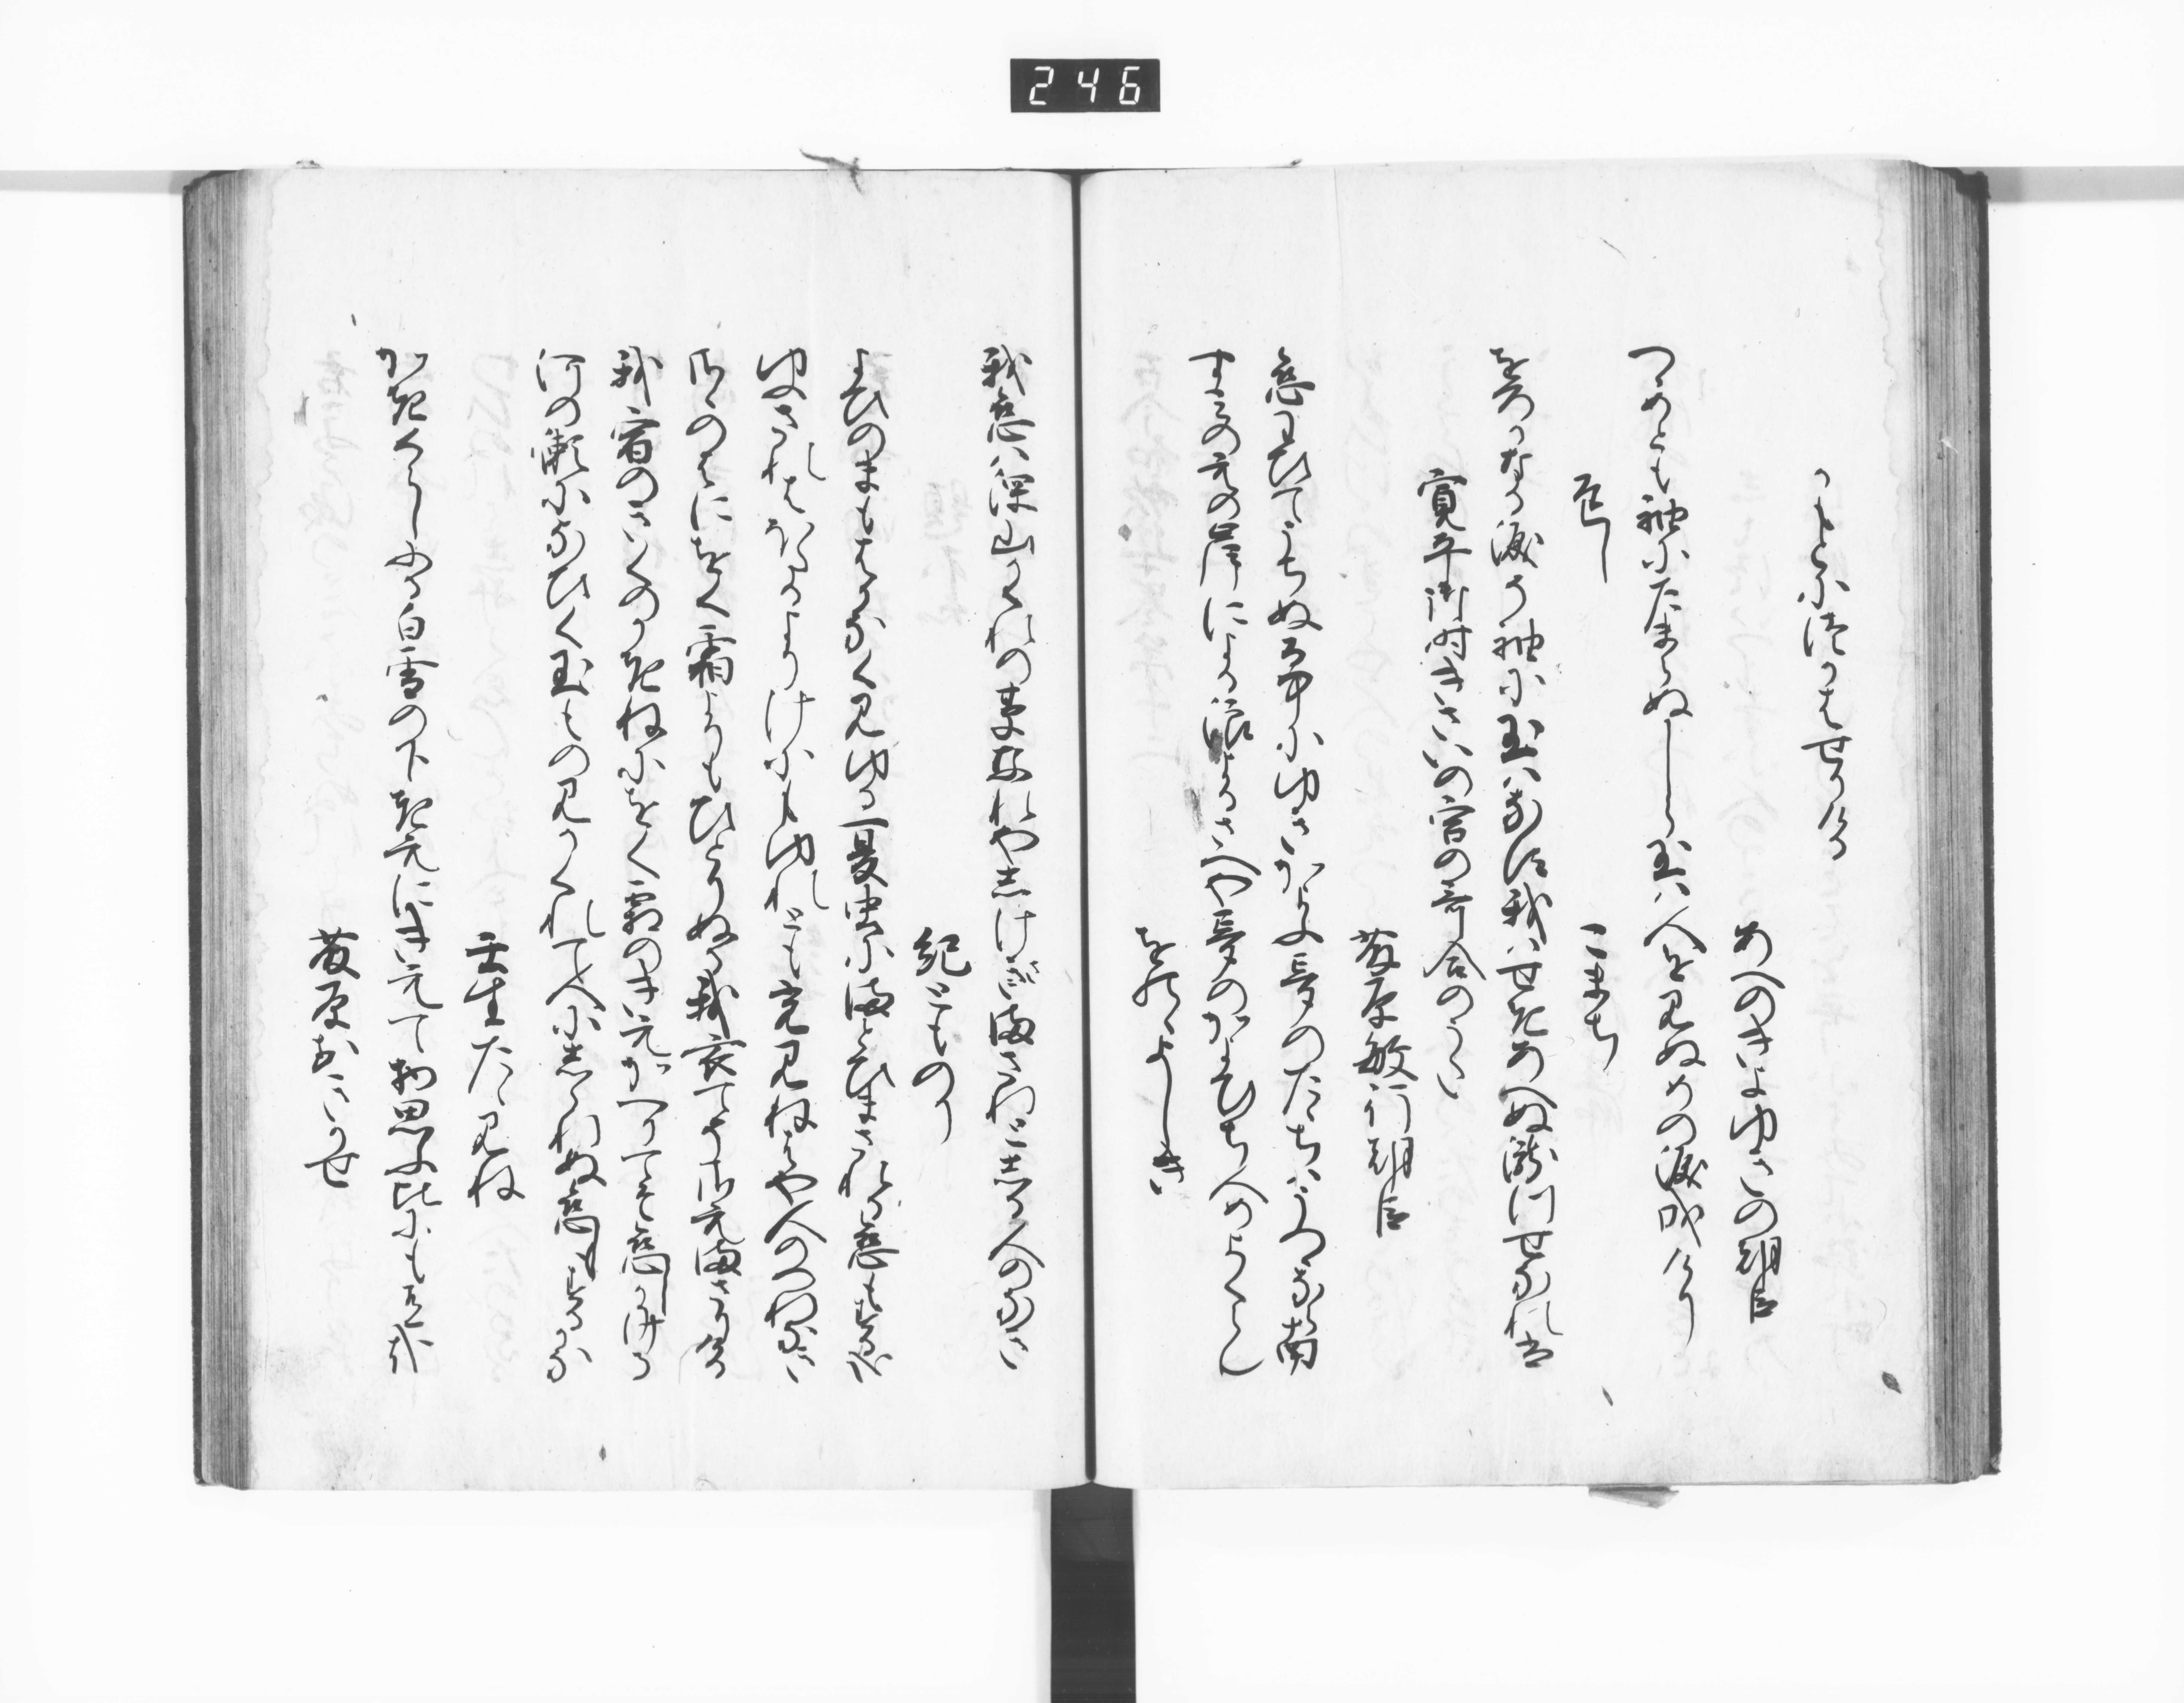 246
かもとに徒かはせりける
あへのきよゆきの朝臣
つゝめとも袖にたまらぬしら玉は人を見ぬめの涙成けり
返し
こまち
をろかなる涙そ袖に玉はなす我はせきあへぬ瀧川せなれは
寛平御時きさいの宮の哥合のうた
藤原敏行朝臣
恋わひてうちぬる中にゆきかよふ夢のたゝちはうつゝな南
すみの江の岸による浪よるさへや夢のかよひち人めよくらし
をのゝよしき
我恋は深山かくれの草なれやしけさまされとしる人のなき
紀とものり
よひのまもはかなく見ゆる夏虫にまとひまされる恋もする哉
ゆふされはほたるよりけにもゆれともひかり見ねはや人のつれなき
さゝのはにをく霜よりもひとりぬる我衣てそさえまさりける
我宿のきくのかきねにをく霜のきえかへりてそ恋しかりける
河の瀬になひく玉もの見かくれて人にしられぬ恋もするかな
壬生たゝ見ね
かきくらしふる白雪の下きえにきえて物思ふ比にも有哉
藤原おきかせ